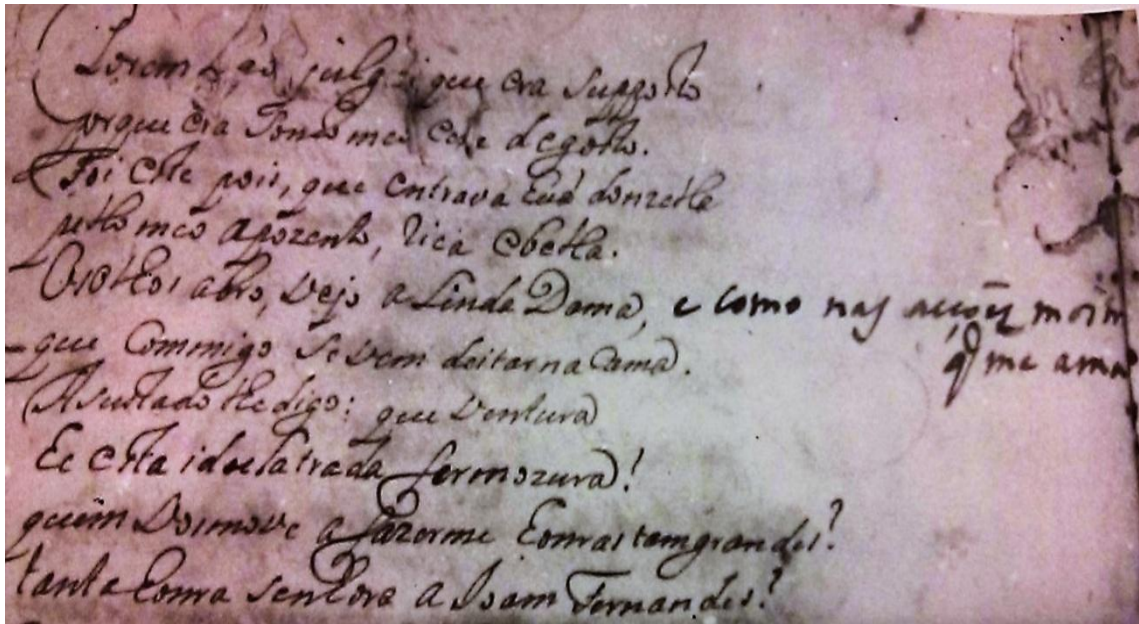 Porem não, julguei que era supposto
porque era Sonno meo este de gosto.
Foi este pois, que entrava hũa donzella
pello meo apozento, rica e bella.
Os olhos abro, vejo a Linda Dama, e como nas acçoẽz
que Commigo se vem deitar na Cama. q̃ me ama
Asustado lhe digo: que ventura
He esta idolatrada fermozura!
quem vos move a fazerme honras tam grandes?
tanta honra senhora a Joam Fernandes?